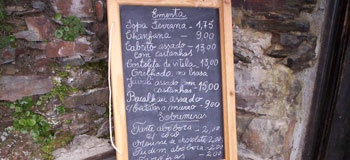 Ementa
Sopa Serrana - 1,75
Chanfana - 9,00
Cabrito assado - 13,00
com castanhas
Costeleta de vitela - 13,00
Grelhada na brasa
Javali assado - 15,00
com castanhas
Bacalhau assado
c/ Batata a murro - 9,00
Sobremesas
Tarte abóbora - 2,00
c/ côco
Mousse de chocolate 2,00
Pudim abóbora - 2,00